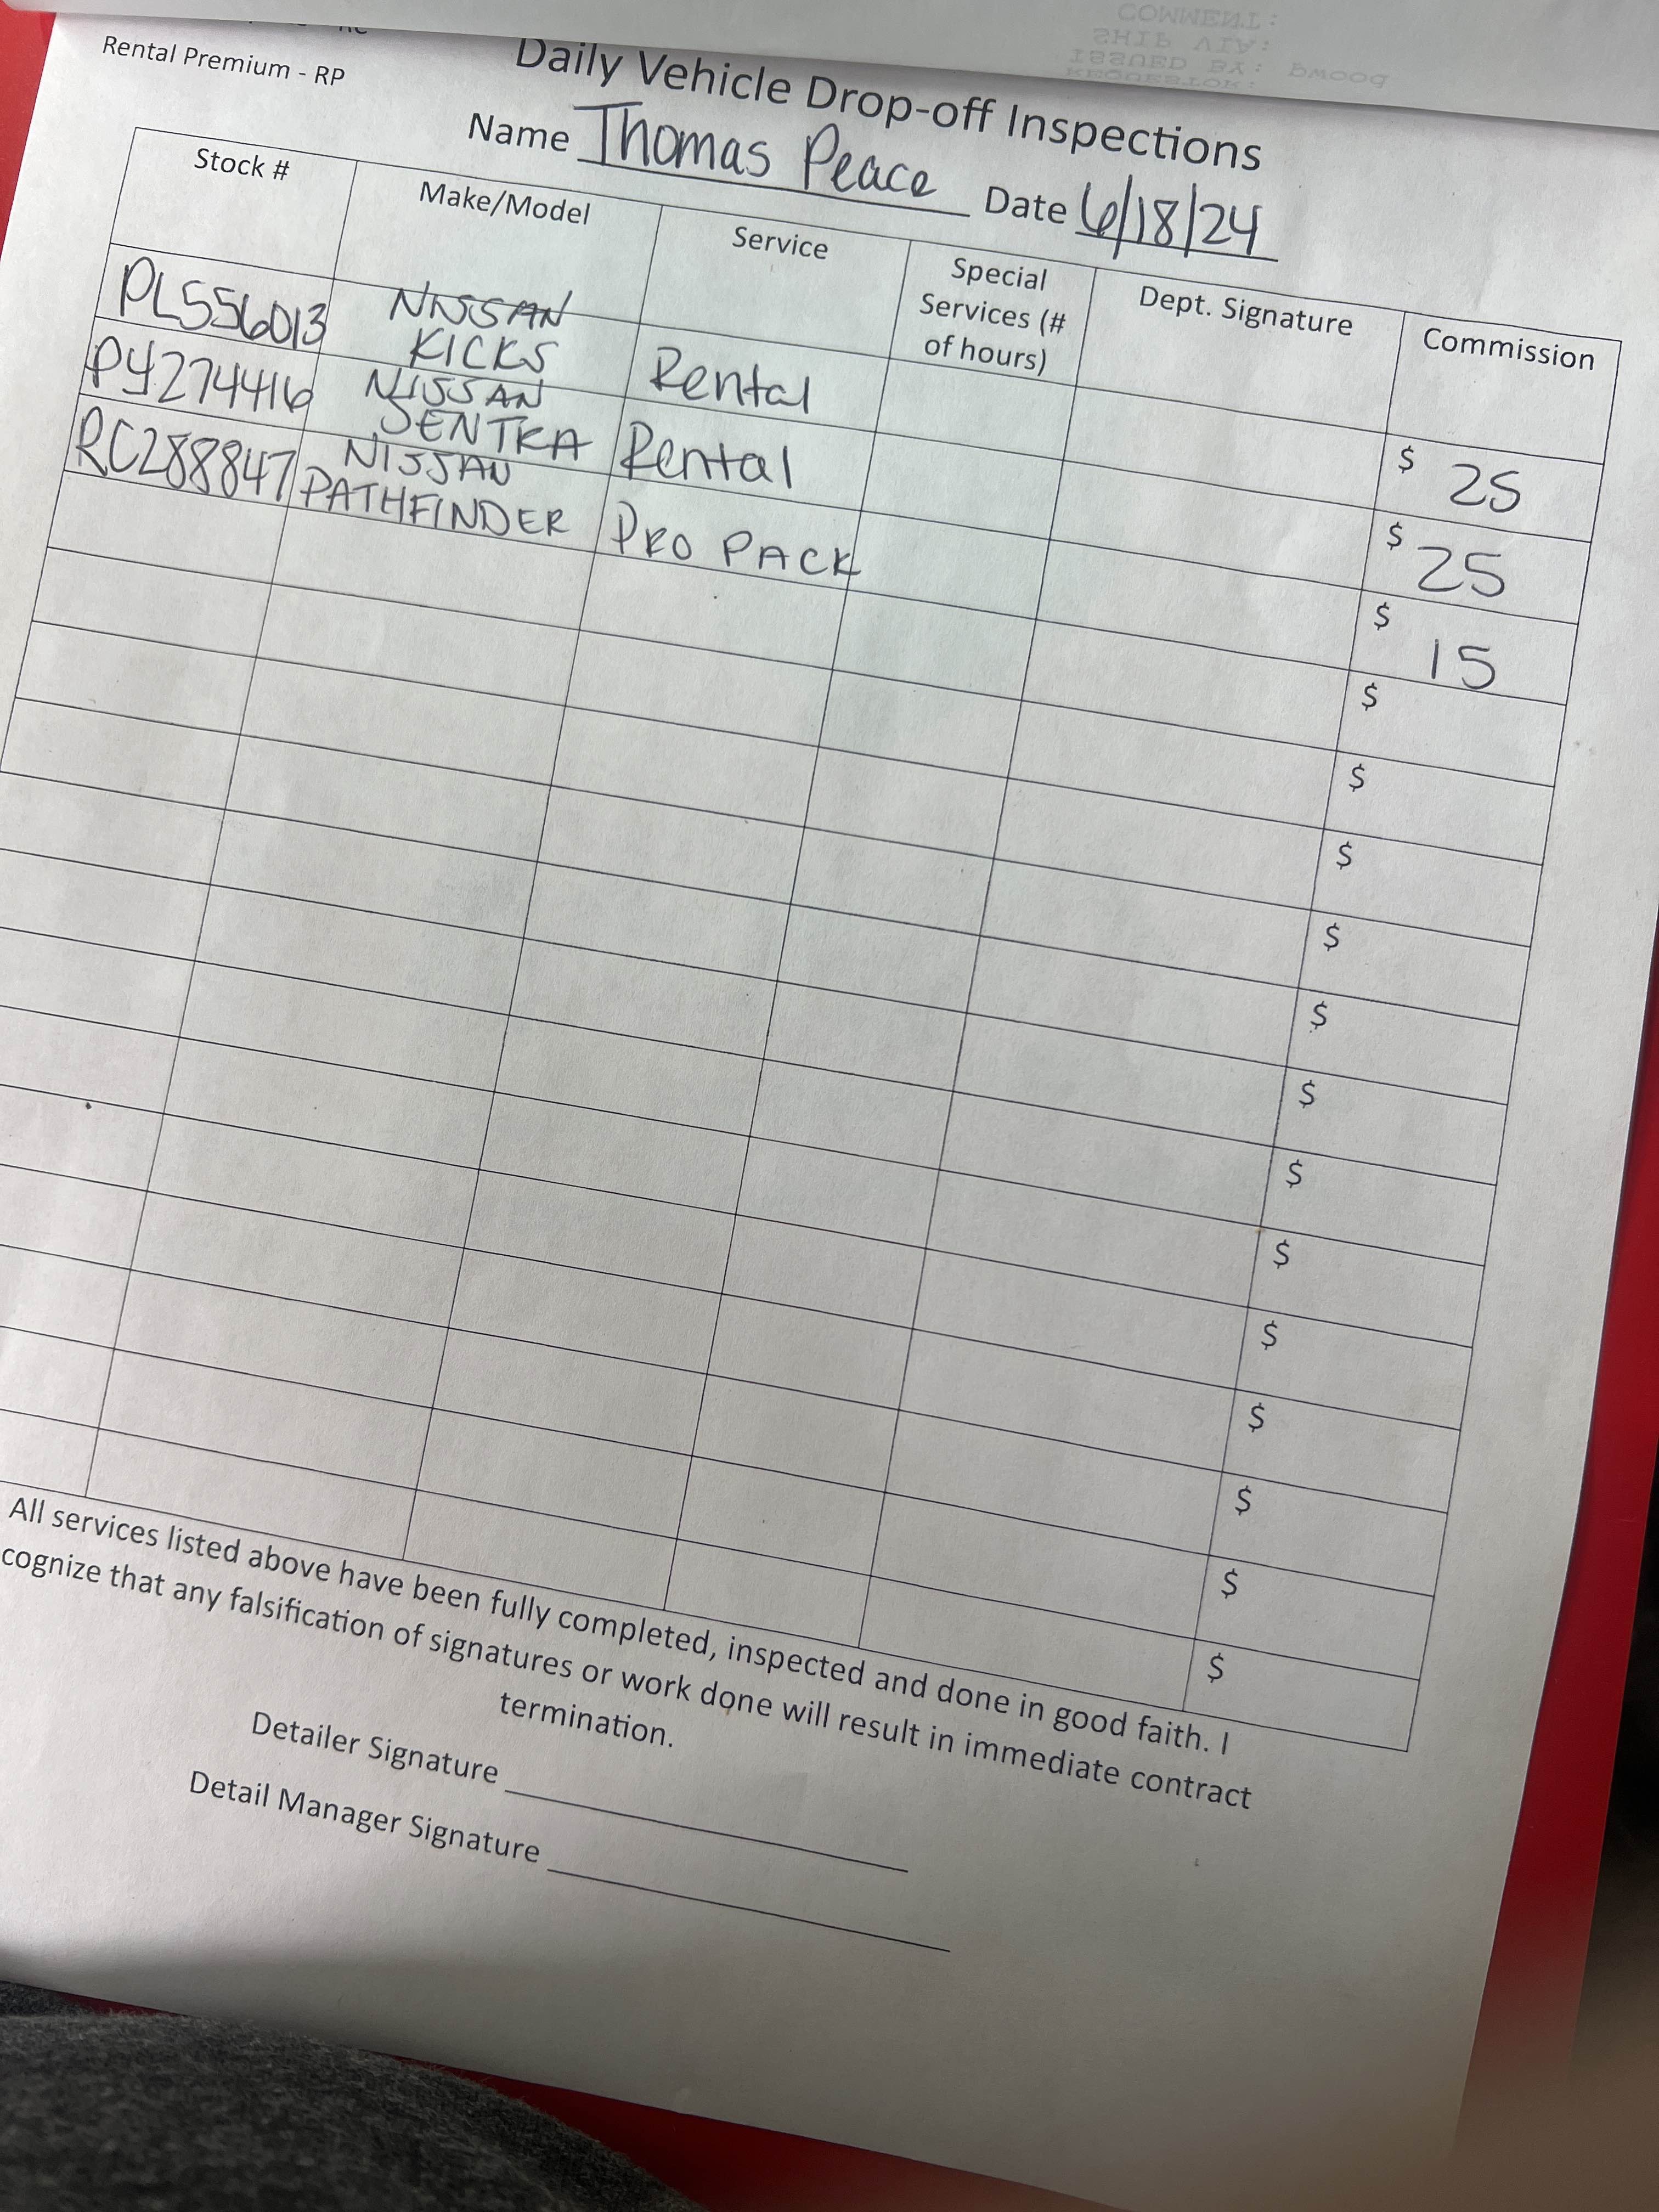 COMMENT:
SHIP VIA:
ISSUED BY: bwood
REQUESTOR:
Rental Premium - RP
Daily Vehicle Drop-off Inspections
Name Thomas Peace Date 6/18/24
Stock # Make/Model Service Special Services (# of hours) Dept. Signature Commission
PL556013 NISSAN KICKS Rental $ 25
PY274416 NISSAN SENTRA Rental $ 25
RC288847 NISSAN PATHFINDER PRO PACK $ 15
$
$
$
$
$
$
$
$
$
$
$
$
$
All services listed above have been fully completed, inspected and done in good faith. I
cognize that any falsification of signatures or work done will result in immediate contract
termination.
Detailer Signature
Detail Manager Signature